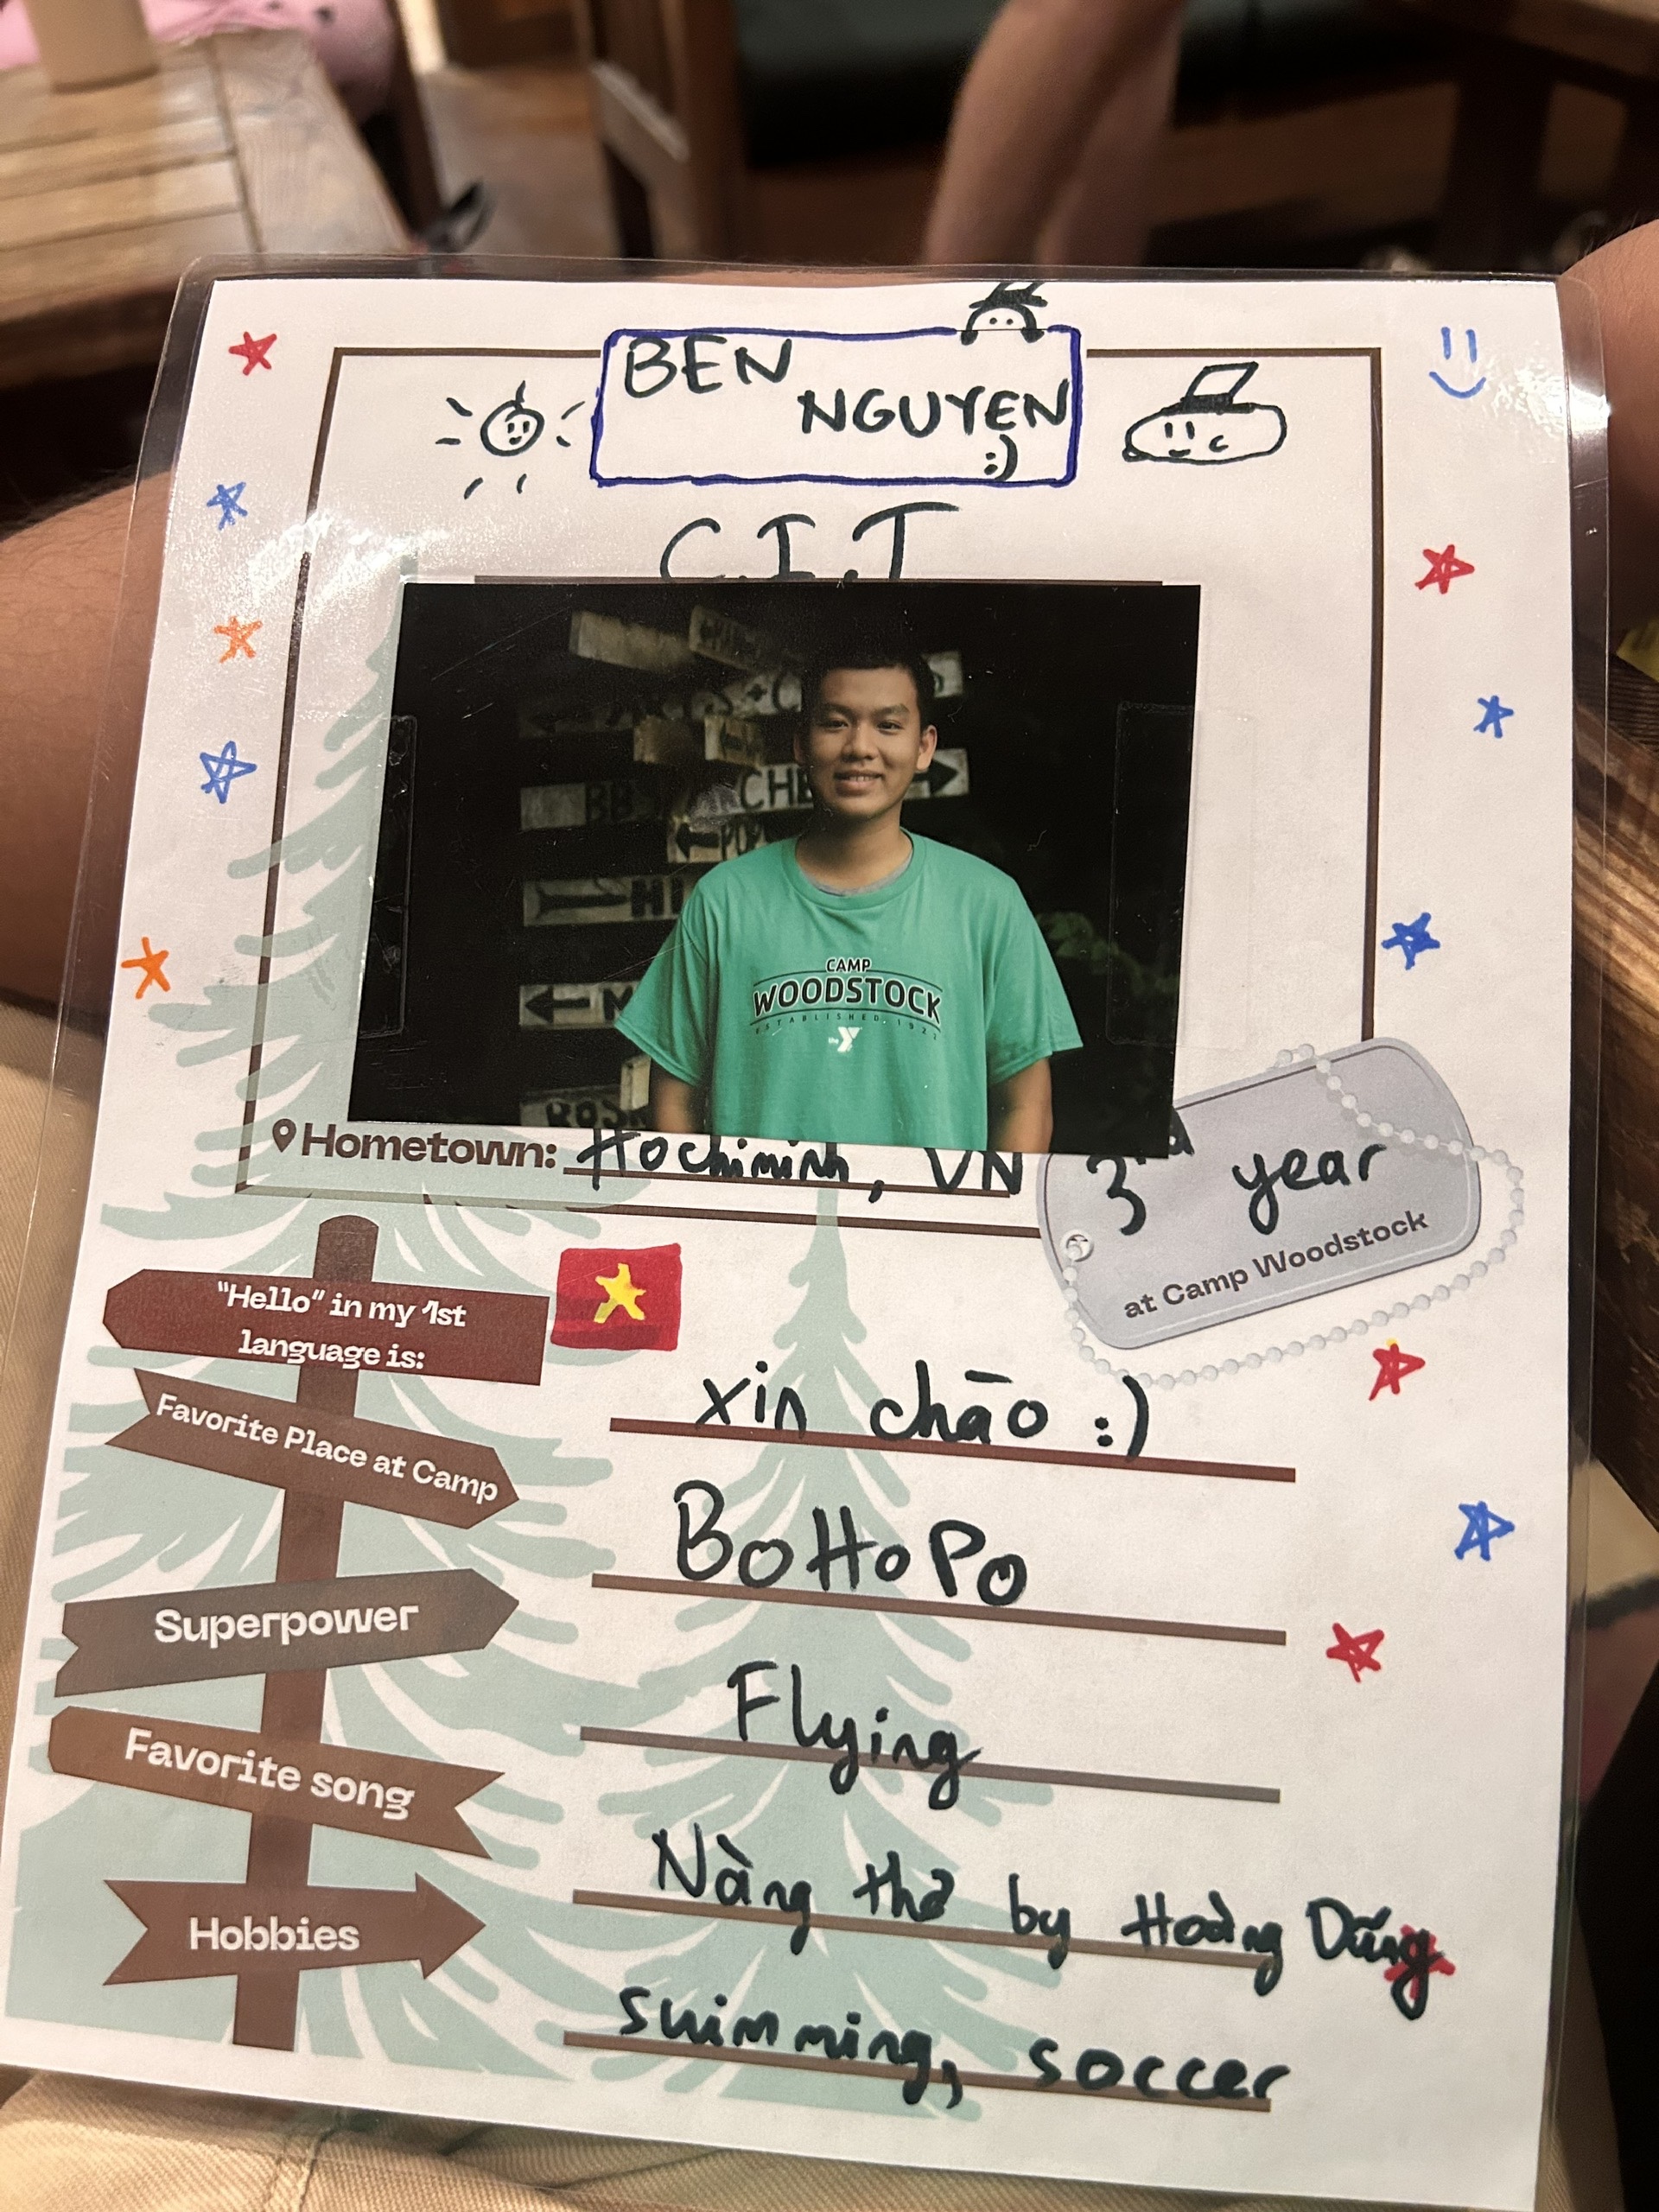 BEN
NGUYEN
:)
C.I.T
CAMP
WOODSTOCK
ESTABLISHED 192
the Y
Hometown: Hochiminh, VN
3rd year
at Camp Woodstock
"Hello" in my 1st
language is:
xin chāo :)
Favorite Place at Camp
BoHoPo
Superpower
Flying
Favorite song
Nàng thơ by Hoàng Dũng
Hobbies
swimming, soccer